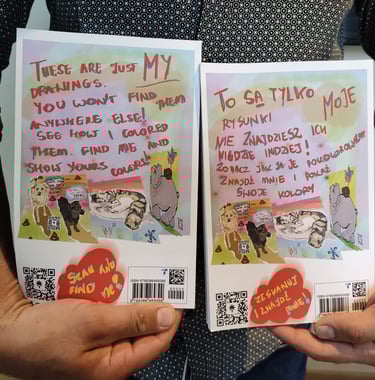 THESE ARE JUST MY
DRAWINGS.
YOU WON'T FIND THEM
ANYWHERE ELSE!
SEE HOW I COLORED
THEM. FIND ME AND
SHOW YOURS COLORS
SCAN AND
FIND
ME!
TO SĄ TYLKO MOJE
RYSUNKI
NIE ZNAJDZIESZ ICH
NIGDZIE INDZIEJ!
ZOBACZ JAK JA JE POKOLOROWAŁEM
ZNAJDŹ MNIE I POKAŻ
SWOJE KOLORY
ZESKANUJ
I ZNAJDŹ
MNIE!